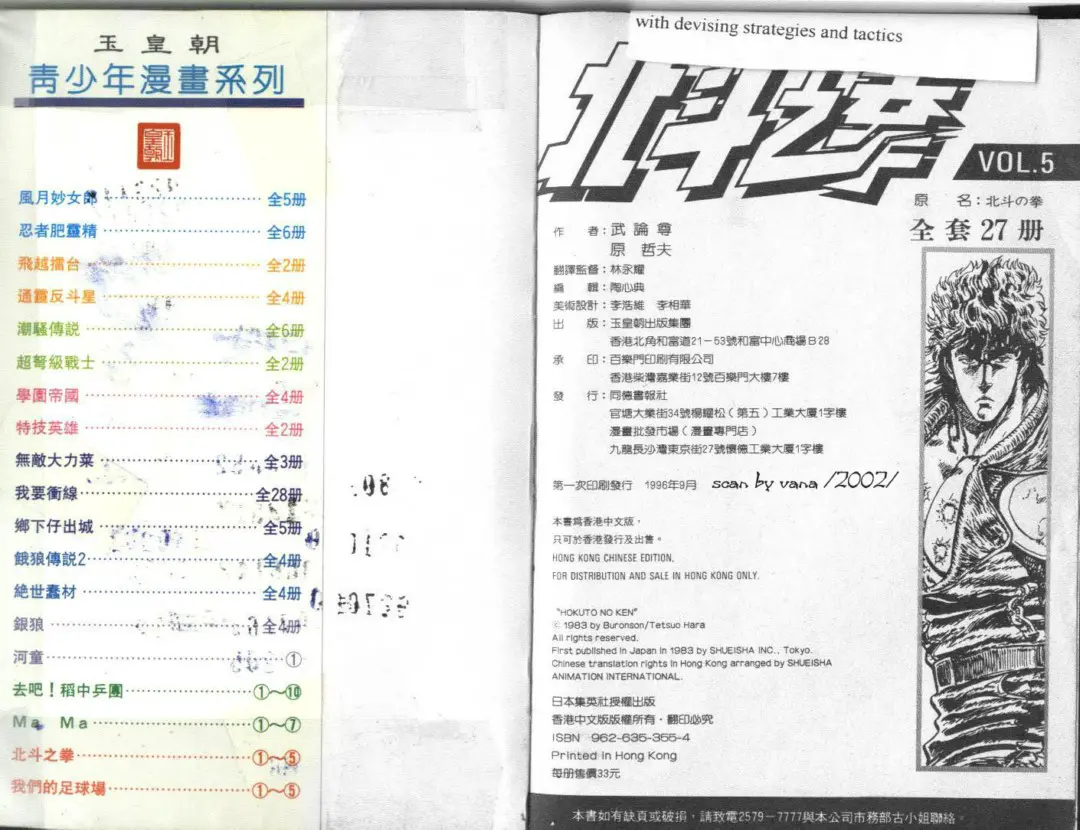 玉皇朝
靑少年漫畫系列
風月妙女郎 全5册
忍者肥靈精 全6册
飛越擂台 全2册
通靈反斗星 全4册
潮騷傳説 全6册
超弩級戰士 全2册
學園帝國 全4册
特技英雄 全2册
無敵大力菜 全3册
我要衝線 全28册
鄉下仔出城 全5册
餓狼傳説2 全4册
絶世蠢材 全4册
銀狼 全4册
河童 ①
去吧！稻中乒團 ①～⑩
Ma Ma ①～⑦
北斗之拳 ①～⑤
我們的足球場 ①～⑤
with devising strategies and tactics
北斗之拳
VOL.5
原 名：北斗の拳
全套27册
作 者：武論尊
原 哲夫
翻譯監督：林永耀
編 輯：陶心典
美術設計：李浩維 李相華
出 版：玉皇朝出版集團
香港北角和富道21－53號和富中心商場B28
承 印：百樂門印刷有限公司
香港柴灣嘉業街12號百樂門大樓7樓
發 行：同德書報社
官塘大業街34號楊耀松（第五）工業大廈1字樓
漫畫批發市場（漫畫專門店）
九龍長沙灣東京街27號懷德工業大廈1字樓
第一次印刷發行 1996年9月 scan by vana /2002/
本書爲香港中文版，
只可於香港發行及出售。
HONG KONG CHINESE EDITION.
FOR DISTRIBUTION AND SALE IN HONG KONG ONLY.
"HOKUTO NO KEN"
© 1983 by Buronson/Tetsuo Hara
All rights reserved.
First published in Japan in 1983 by SHUEISHA INC., Tokyo.
Chinese translation rights in Hong Kong arranged by SHUEISHA
ANIMATION INTERNATIONAL.
日本集英社授權出版
香港中文版版權所有，翻印必究
ISBN 962-635-355-4
Printed in Hong Kong
每册售價33元
本書如有缺頁或破損，請致電2579－7777與本公司市務部古小姐聯絡。